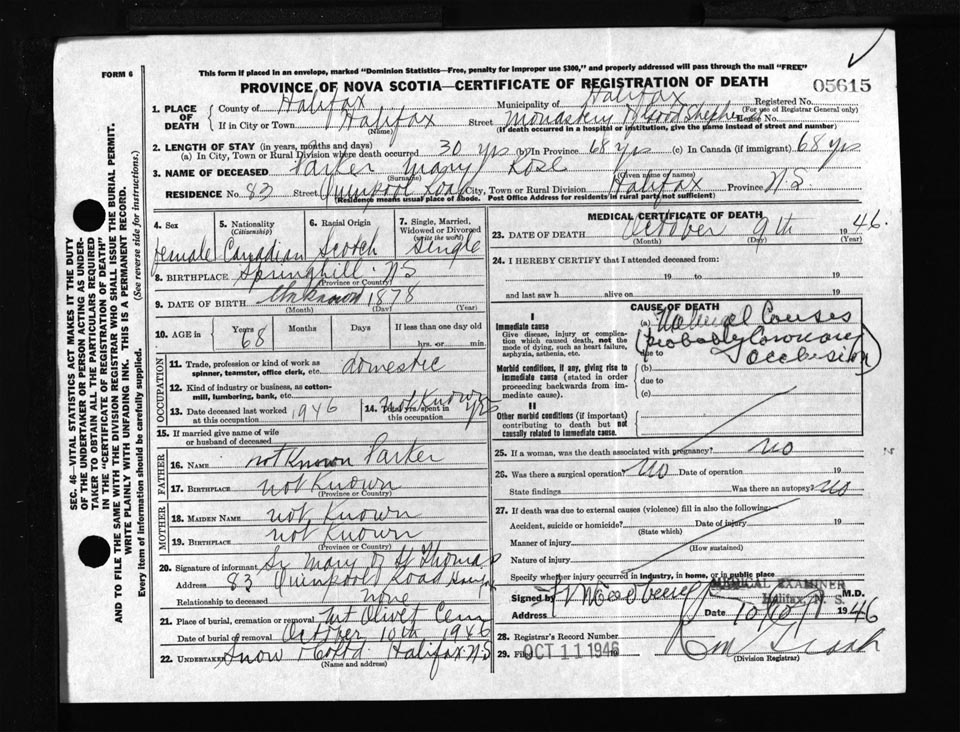 FORM 6
This form if placed in an envelope, marked "Dominion Statistics—Free, penalty for improper use $300," and properly addressed will pass through the mail "FREE"
PROVINCE OF NOVA SCOTIA—CERTIFICATE OF REGISTRATION OF DEATH
05615
1. PLACE OF DEATH
County of Halifax Municipality of Halifax Registered No. (For use of Registrar General only)
If in City or Town Halifax (Name) Street Monastery of Good Shepherd House No.
(If death occurred in a hospital or institution, give the name instead of street and number)
2. LENGTH OF STAY (in years, months and days)
(a) In City, Town or Rural Division where death occurred 30 yrs (b) In Province 68 yrs (c) In Canada (if immigrant) 68 yrs
3. NAME OF DECEASED Parker Mary Rose
(Surname) (Given name or names)
RESIDENCE No. 83 Street Quinpool Road City, Town or Rural Division Halifax Province N.S
(Residence means usual place of abode. Post Office Address for residents in rural parts not sufficient)
4. Sex 5. Nationality (Citizenship) 6. Racial Origin 7. Single, Married, Widowed or Divorced (write the word)
Female Canadian Scotch Single
8. BIRTHPLACE Springhill N.S
(Province or Country)
9. DATE OF BIRTH Unknown 1878
(Month) (Day) (Year)
10. AGE in Years Months Days If less than one day old
68 hrs. or min.
OCCUPATION
11. Trade, profession or kind of work as spinner, teamster, office clerk, etc. domestic
12. Kind of industry or business, as cotton-mill, lumbering, bank, etc.
13. Date deceased last worked at this occupation 1946 14. Total yrs. spent in this occupation not Known yrs
15. If married give name of wife or husband of deceased
FATHER
16. NAME not Known Parker
17. BIRTHPLACE not Known
(Province or Country)
MOTHER
18. MAIDEN NAME not Known
19. BIRTHPLACE not Known
(Province or Country)
20. Signature of informant Sr Mary of St Thomas
Address 83 Quinpool Road
Relationship to deceased none
21. Place of burial, cremation or removal Mt Olivet Cem
Date of burial or removal October 10th 1946
22. UNDERTAKER Snow & Co Ltd. Halifax N.S
(Name and address)
MEDICAL CERTIFICATE OF DEATH
23. DATE OF DEATH October 9th 1946
(Month) (Day) (Year)
24. I HEREBY CERTIFY that I attended deceased from:
19 to 19
and last saw h alive on 19
CAUSE OF DEATH
I
Immediate cause
Give disease, injury or complication which caused death, not the mode of dying, such as heart failure, asphyxia, asthenia, etc.
(a) Natural Causes
due to (probably Coronary Occlusion)
Morbid conditions, if any, giving rise to immediate cause (stated in order proceeding backwards from immediate cause).
(b)
due to
(c)
II
Other morbid conditions (if important) contributing to death but not causally related to immediate cause.
25. If a woman, was the death associated with pregnancy? NO
26. Was there a surgical operation? NO Date of operation 19
State findings Was there an autopsy? NO
27. If death was due to external causes (violence) fill in also the following:
Accident, suicide or homicide? Date of injury 19
(State which)
Manner of injury
(How sustained)
Nature of injury
Specify whether injury occurred in industry, in home, or in public place
MEDICAL EXAMINER
Halifax, N. S.
Signed by M.D.
Address Date 1946
28. Registrar's Record Number
29. Filed OCT 11 1946
(Division Registrar)
SEC. 46—VITAL STATISTICS ACT MAKES IT THE DUTY OF THE UNDERTAKER OR PERSON ACTING AS UNDERTAKER TO OBTAIN ALL THE PARTICULARS REQUIRED IN THE "CERTIFICATE OF REGISTRATION OF DEATH" AND TO FILE THE SAME WITH THE DIVISION REGISTRAR WHO SHALL ISSUE THE BURIAL PERMIT.
WRITE PLAINLY WITH UNFADING INK. THIS IS A PERMANENT RECORD.
Every item of information should be carefully supplied. (See reverse side for instructions).